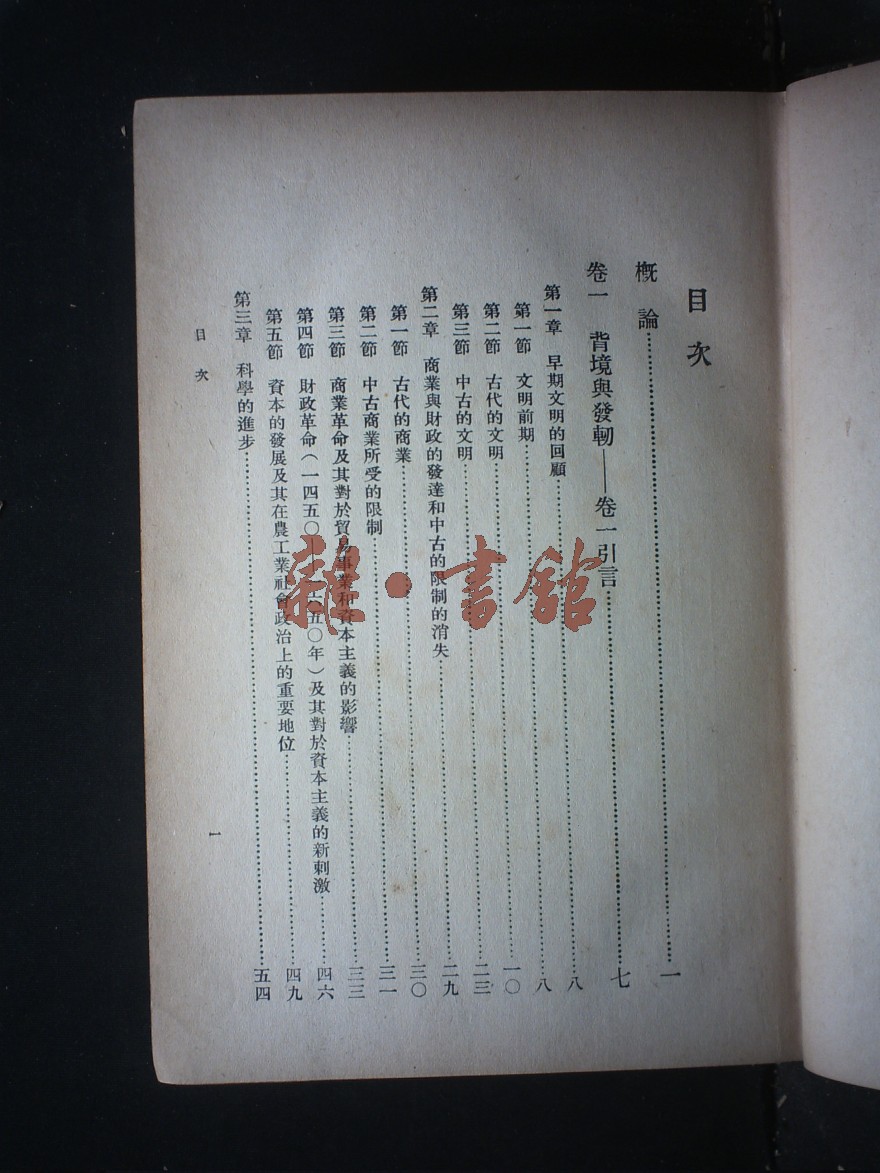 目次
概論⋯⋯一
卷一 背境與發軔——卷一引言⋯⋯七
第一章 早期文明的回顧⋯⋯八
第一節 文明前期⋯⋯八
第二節 古代的文明⋯⋯一〇
第三節 中古的文明⋯⋯二三
第二章 商業與財政的發達和中古的限制的消失⋯⋯二九
第一節 古代的商業⋯⋯三〇
第二節 中古商業所受的限制⋯⋯三一
第三節 商業革命及其對於貿易事業和資本主義的影響⋯⋯三三
第四節 財政革命(一四五〇—一六五〇年)及其對於資本主義的新刺激⋯⋯四六
第五節 資本的發展及其在農工業社會政治上的重要地位⋯⋯四九
第三章 科學的進步⋯⋯五四
目次 一
雜·書館